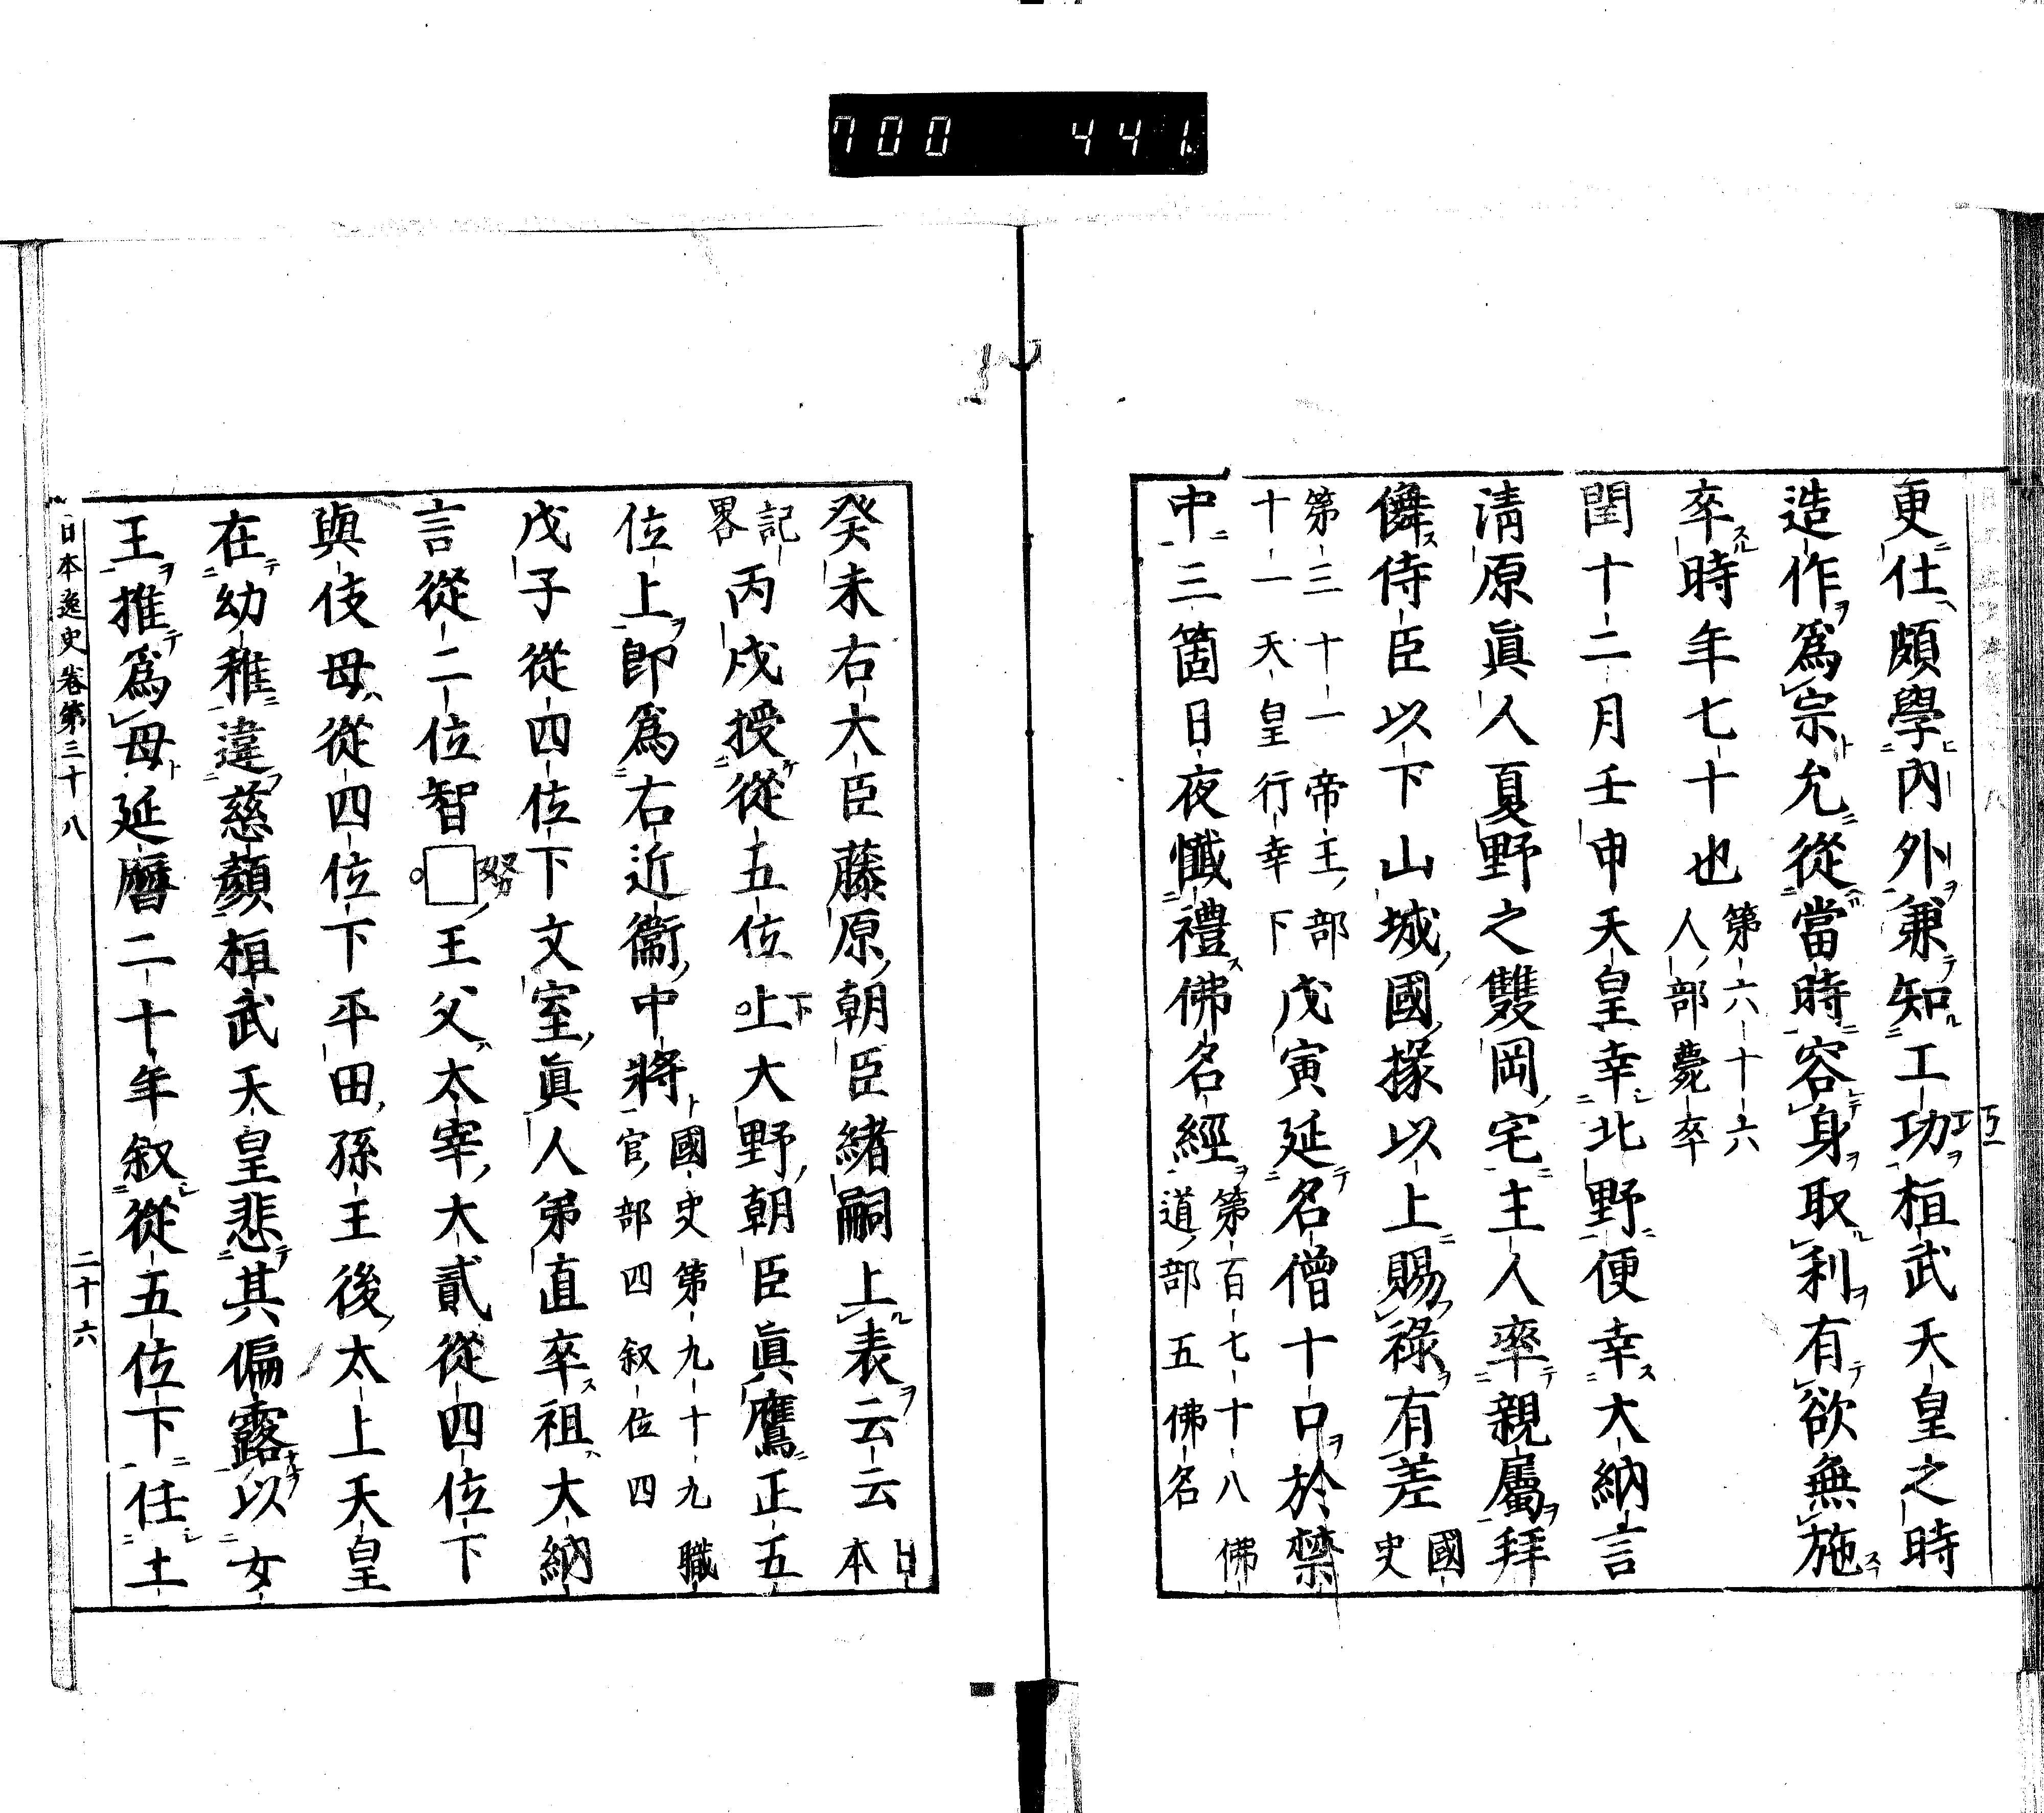 700 441
更仕頗學內外兼知工功桓武天皇之時
造作爲宗允從當時容身取利有欲無施
卒時年七十也第六十六人部薨卒
閏十二月壬申天皇幸北野便幸大納言
清原眞人夏野之雙岡宅主人率親屬拜
儛侍臣以下山城國掾以上賜祿有差國史
第三十一帝王部十一天皇行幸下戊寅延名僧十口於禁
中三箇日夜懺禮佛名經第百七十八佛道部五佛名
癸未右大臣藤原朝臣緖嗣上表云云日本
記畧丙戌授從五位上下大野朝臣眞鷹正五
位上卽爲右近衞中將國史第九十九職官部四叙位四
戊子從四位下文室眞人弟直卒祖大納
言從二位智□努王父太宰大貳從四位下
與伎母從四位下平田孫王後太上天皇
在幼稚違慈顏桓武天皇悲其偏露以女
王推爲母延曆二十年叙從五位下任土
日本逸史卷第三十八 二十六